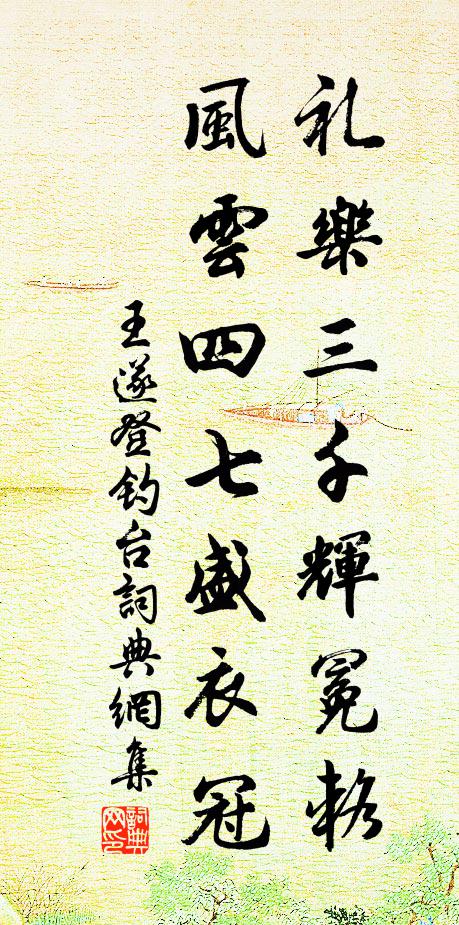 礼樂三千輝冕輅
風雲四七盛衣冠
王遂登釣台詞典網集
詞典網印